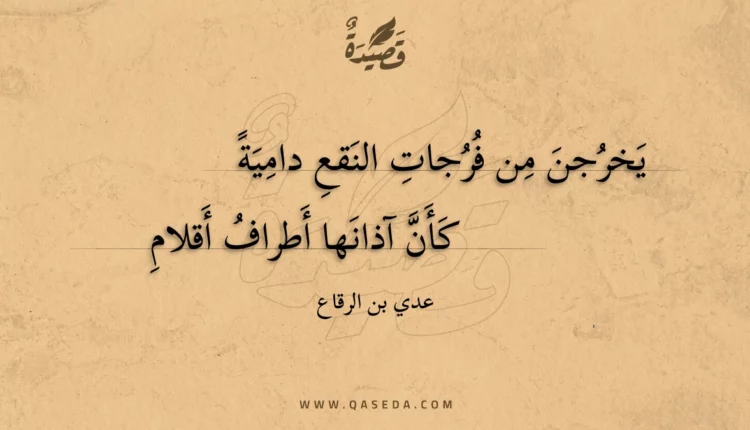 قَصِيْدَةٌ
يَخرُجنَ مِن فُرُجاتِ النَقعِ دامِيَةً
كَأَنَّ آذانَها أَطرافُ أَقلامِ
عدي بن الرقاع
WWW.QASEDA.COM